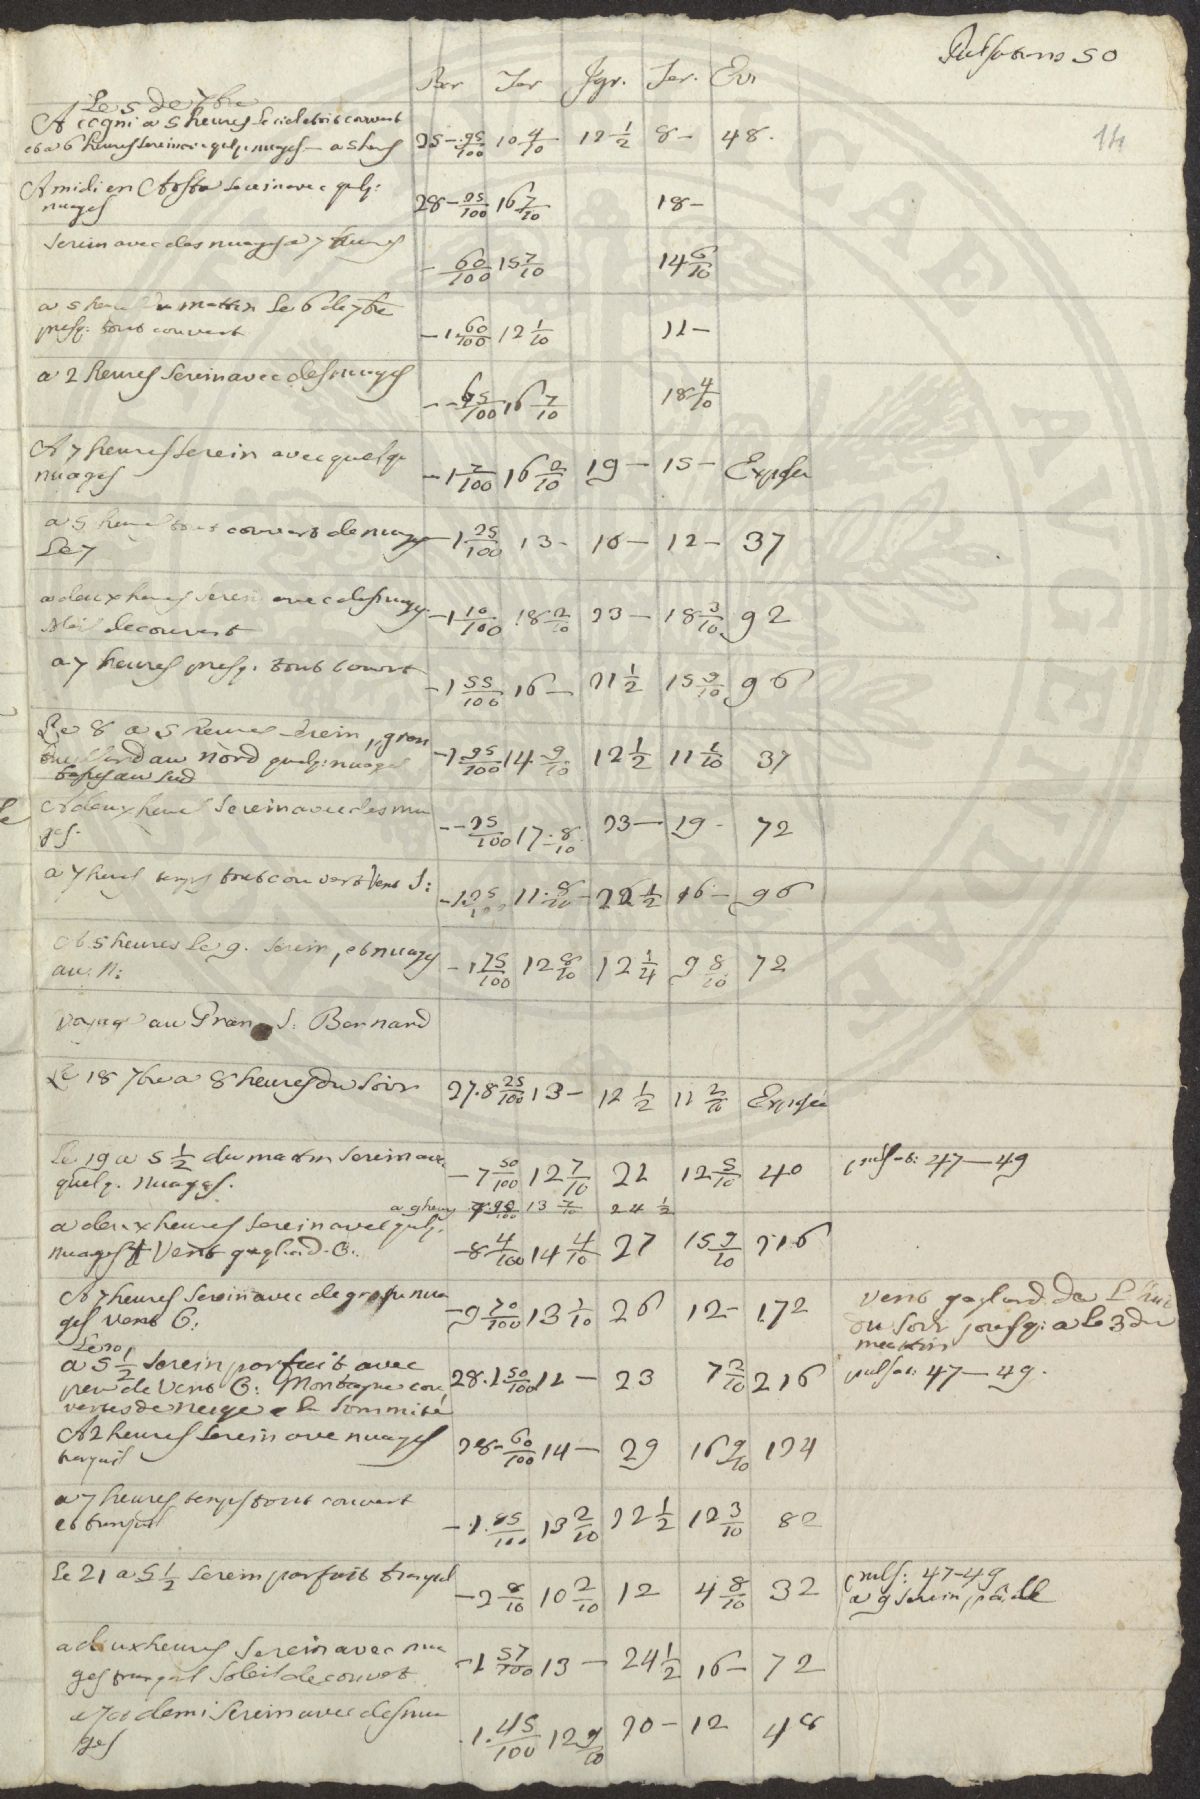 Pulsations 50
14
Bar Ter Igr. Ter. Ev.
Le 5 de 7bre
A cogni a 5 heures le ciel etoit couvert
et a 6 heures serein avec quelq: nuages — a 5 heures 25 — 95/100 10 4/10 12 1/2 8 — 48.
A midi en Aosta serein avec quelq:
nuages 28 — 95/100 16 7/10 18 —
serein avec des nuages a 7 heures — 60/100 15 7/10 14 6/10
a 5 heures du mattin le 6 de 7bre
presq: tout couvert — 1 60/100 12 1/10 11 —
a 2 heures serein avec des nuages — 65/100 16 7/10 18 4/10
A 7 heures serein avec quelqs
nuages — 1 7/100 16 2/10 19 — 15 — Exposée
a 5 heures tout couvert de nuages
Le 7 — 1 25/100 13 — 16 — 12 — 37
a deux heures serein avec des nuages
soleil decouvert — 1 10/100 18 2/10 23 — 18 3/10 92
a 7 heures presq: tout couvert — 1 55/100 16 — 21 1/2 15 9/10 96
Le 8 a 5 heures serein, gran
brouillard au nord quelq: nuages
bas au sud — 1 95/100 14 9/10 12 1/2 11 1/10 37
A deux heures serein avec des nua
ges — 95/100 17 8/10 23 — 19 — 72
a 7 heures temps tout couvert Vent S: — 1 25/100 11 8/10 — 22 1/2 16 — 96
A 5 heures le 9. serein, et nuages
au N: — 1 75/100 12 8/10 12 1/4 9 8/10 72
Voyage au Gran S: Bernard
Le 18 7bre a 8 heures du soir 27. 8 25/100 13 — 12 1/2 11 2/10 Exposée
Le 19 a 5 1/2 du matin serein avec
quelq. nuages. — 7 50/100 12 7/10 22 12 5/10 40 pulsat: 47 — 49
a 9 heures 7 90/100 13 7/10 24 1/2
a deux heures serein avec quelq.
nuages Vent gagliard. O: — 8 4/100 14 4/10 27 15 9/10 216
A 7 heures serein avec de gros nua
ges vent O: — 9 70/100 13 1/10 26 12 — 172 vent gagliard de
du soir jusq: a le 3 du
mattin
Le 20
a 5 1/2 serein parfait avec
peu de vent O: Montagne cou
vertes de neige a la sommité 28. 1 50/100 12 — 23 7 2/10 216 pulsat: 47 — 49.
A 2 heures serein avec nuages
tranquil 28 — 60/100 14 — 29 16 9/10 124
a 7 heures temps tout couvert
et tranquil — 1. 85/100 13 2/10 22 1/2 12 3/10 82
Le 21 a 5 1/2 serein parfait tranquil — 2 8/10 10 2/10 12 4 8/10 32 puls: 47-49
a 9 serein,
a deux heures serein avec nua
ges tranquil soleil decouvert — 1 57/100 13 — 24 1/2 16 — 72
a 7 et demi serein avec des nua
ges . 1. 45/100 12 9/10 20 — 12 48